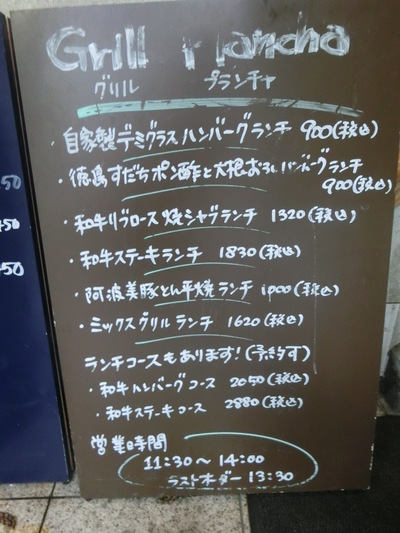 Grill Plancha
グリル プランチャ
・自家製デミグラスハンバーグランチ 900(税込)
・徳島すだちポン酢と大根おろしハンバーグランチ
900(税込)
・和牛リブロース焼シャブランチ 1320(税込)
・和牛ステーキランチ 1830(税込)
・阿波美豚とん平焼ランチ 1900(税込)
・ミックスグリルランチ 1620(税込)
ランチコースもあります!(予約す)
・和牛ハンバーグコース 2050(税込)
・和牛ステーキコース 2880(税込)
営業時間
11:30～14:00
ラストオーダー 13:30
50
50
50